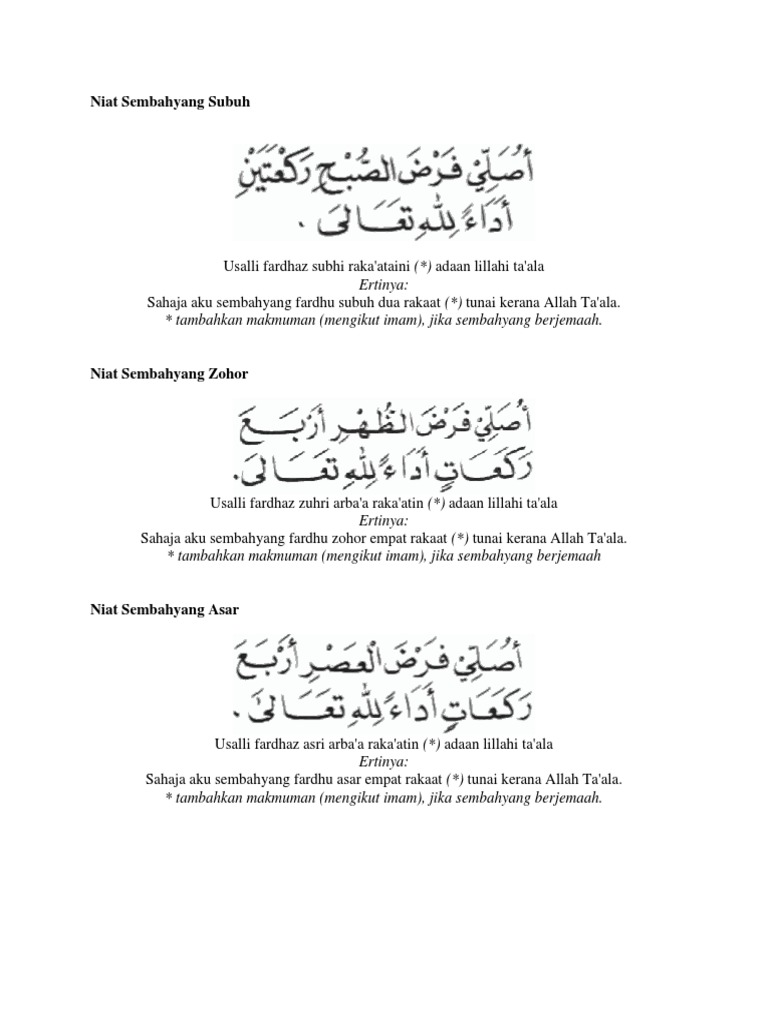 Niat Sembahyang Subuh
أُصَلِّيْ فَرْضَ الصُّبْحِ رَكْعَتَيْنِ
أَدَاءً لِلّٰهِ تَعَالَىٰ .
Usalli fardhaz subhi raka'ataini (*) adaan lillahi ta'ala
Ertinya:
Sahaja aku sembahyang fardhu subuh dua rakaat (*) tunai kerana Allah Ta'ala.
* tambahkan makmuman (mengikut imam), jika sembahyang berjemaah.
Niat Sembahyang Zohor
أُصَلِّيْ فَرْضَ الظُّهْرِ أَرْبَعَ
رَكَعَاتٍ أَدَاءً لِلّٰهِ تَعَالَىٰ.
Usalli fardhaz zuhri arba'a raka'atin (*) adaan lillahi ta'ala
Ertinya:
Sahaja aku sembahyang fardhu zohor empat rakaat (*) tunai kerana Allah Ta'ala.
* tambahkan makmuman (mengikut imam), jika sembahyang berjemaah
Niat Sembahyang Asar
أُصَلِّيْ فَرْضَ الْعَصْرِ أَرْبَعَ
رَكَعَاتٍ أَدَاءً لِلّٰهِ تَعَالَىٰ .
Usalli fardhaz asri arba'a raka'atin (*) adaan lillahi ta'ala
Ertinya:
Sahaja aku sembahyang fardhu asar empat rakaat (*) tunai kerana Allah Ta'ala.
* tambahkan makmuman (mengikut imam), jika sembahyang berjemaah.